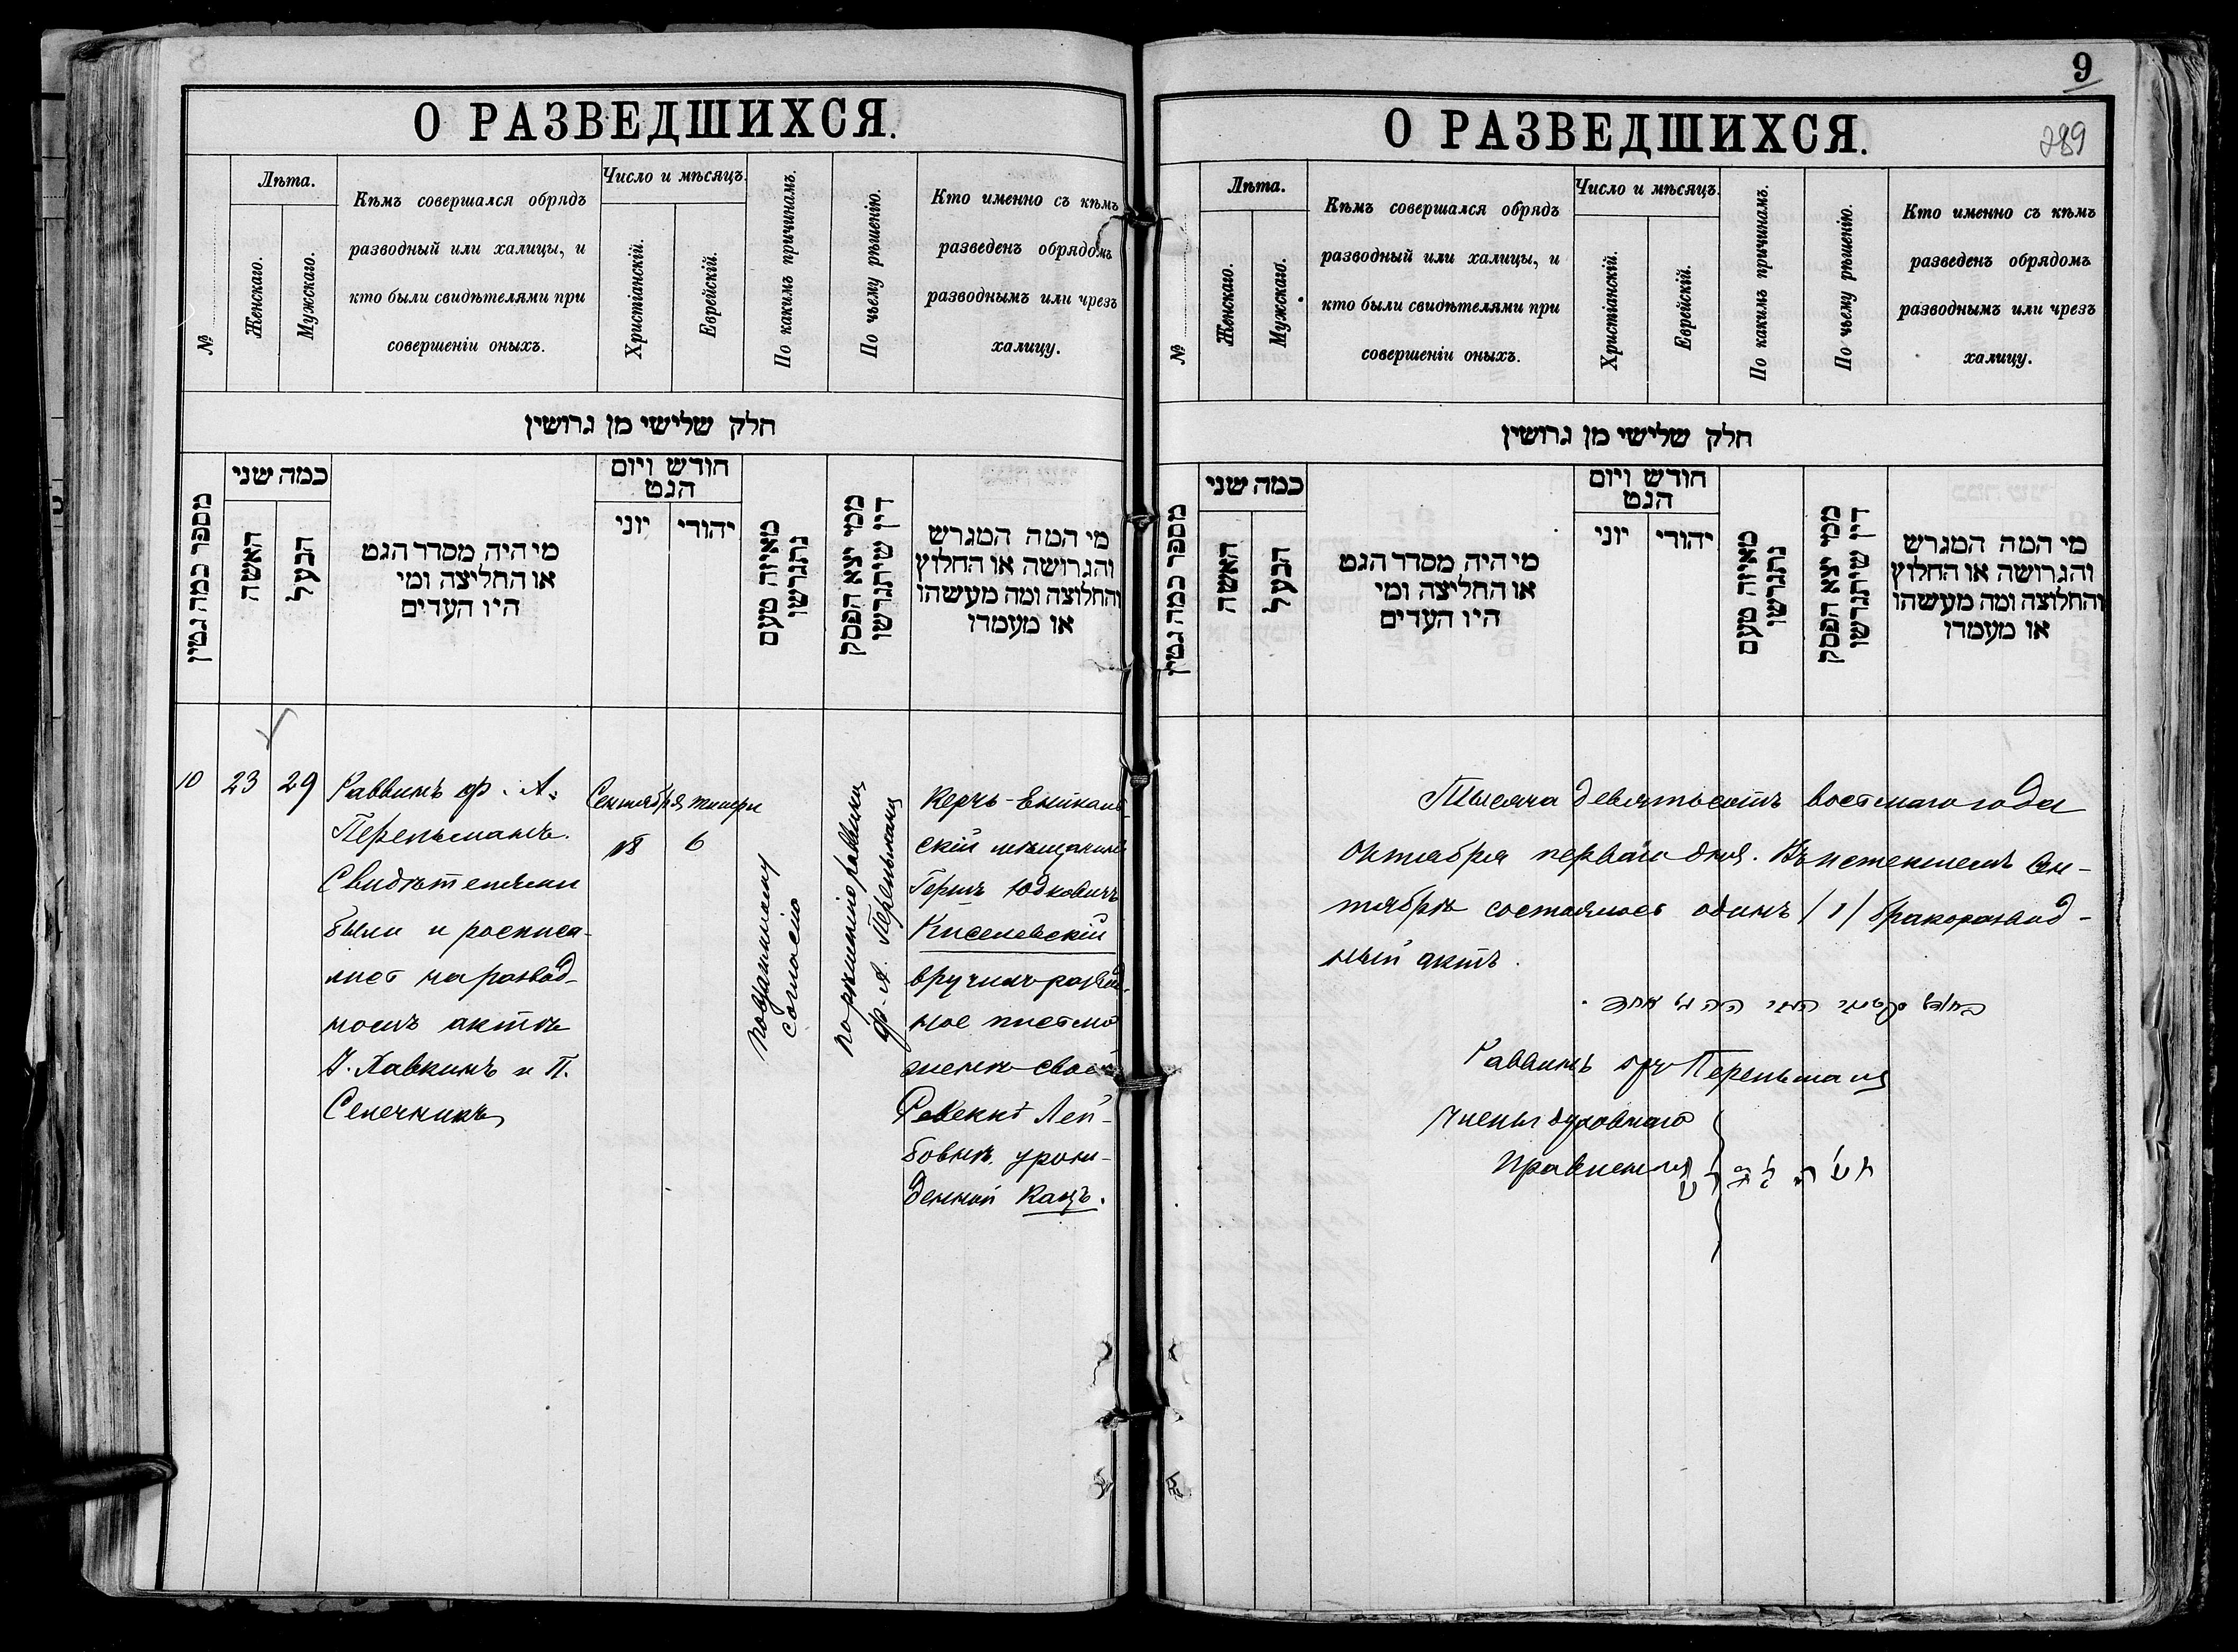 О РАЗВЕДШИХСЯ.
№
Лѣта.
Женскаго.
Мужскаго.
Кѣмъ совершался обрядъ
разводный или халицы, и
кто были свидѣтелями при
совершеніи оныхъ.
Число и мѣсяцъ.
Христіанскій.
Еврейскій.
По какимъ причинамъ.
По чьему рѣшенію.
Кто именно съ кѣмъ
разведенъ обрядомъ
разводнымъ или чрезъ
халицу.
חלק שלישי מן גרושין
מספר כמה גטין
כמה שני
האשה
הבעל
מי היה מסדר הגט
או החליצה ומי
היו העדים
חודש ויום
הגט
יוני
יהודי
מאיזה טעם
נתגרשו
ממי יצא הפסק
דין שיתגרשו
מי המה המגרש
והגרושה או החלוץ
והחלוצה ומה מעשהו
או מעמדו
10
23
29
Раввинъ ф. А.
Перельманъ.
Свидѣтелями
были и росписа-
лись на развод-
номъ актѣ
Х. Хавкинъ и П.
Сенечникъ
Сентября
18
тишри
6
по взаимному
согласію
по рѣшенію раввина
ф. А. Перельмана
Керчь-Еникаль-
скій мѣщанинъ
Гершъ Юдковичъ
Киселевскій
вручилъ развод-
ное письмо
женѣ своей
Ревекѣ Лей-
бовнѣ, урож-
денной Кацъ.
9
О РАЗВЕДШИХСЯ.
289
№
Лѣта.
Женскаго.
Мужскаго.
Кѣмъ совершался обрядъ
разводный или халицы, и
кто были свидѣтелями при
совершеніи оныхъ.
Число и мѣсяцъ.
Христіанскій.
Еврейскій.
По какимъ причинамъ.
По чьему рѣшенію.
Кто именно съ кѣмъ
разведенъ обрядомъ
разводнымъ или чрезъ
халицу.
חלק שלישי מן גרושין
מספר כמה גטין
כמה שני
האשה
הבעל
מי היה מסדר הגט
או החליצה ומי
היו העדים
חודש ויום
הגט
יוני
יהודי
מאיזה טעם
נתגרשו
ממי יצא הפסק
דין שיתגרשו
מי המה המגרש
והגרושה או החלוץ
והחלוצה ומה מעשהו
או מעמדו
Тысяча девятьсотъ восьмаго года
Октября перваго дня. Въ истекшемъ Сен-
тябрѣ состоялось одинъ /1/ бракоразвод-
ный актъ.
Раввинъ Перельманъ
Члены духовнаго
Правленія